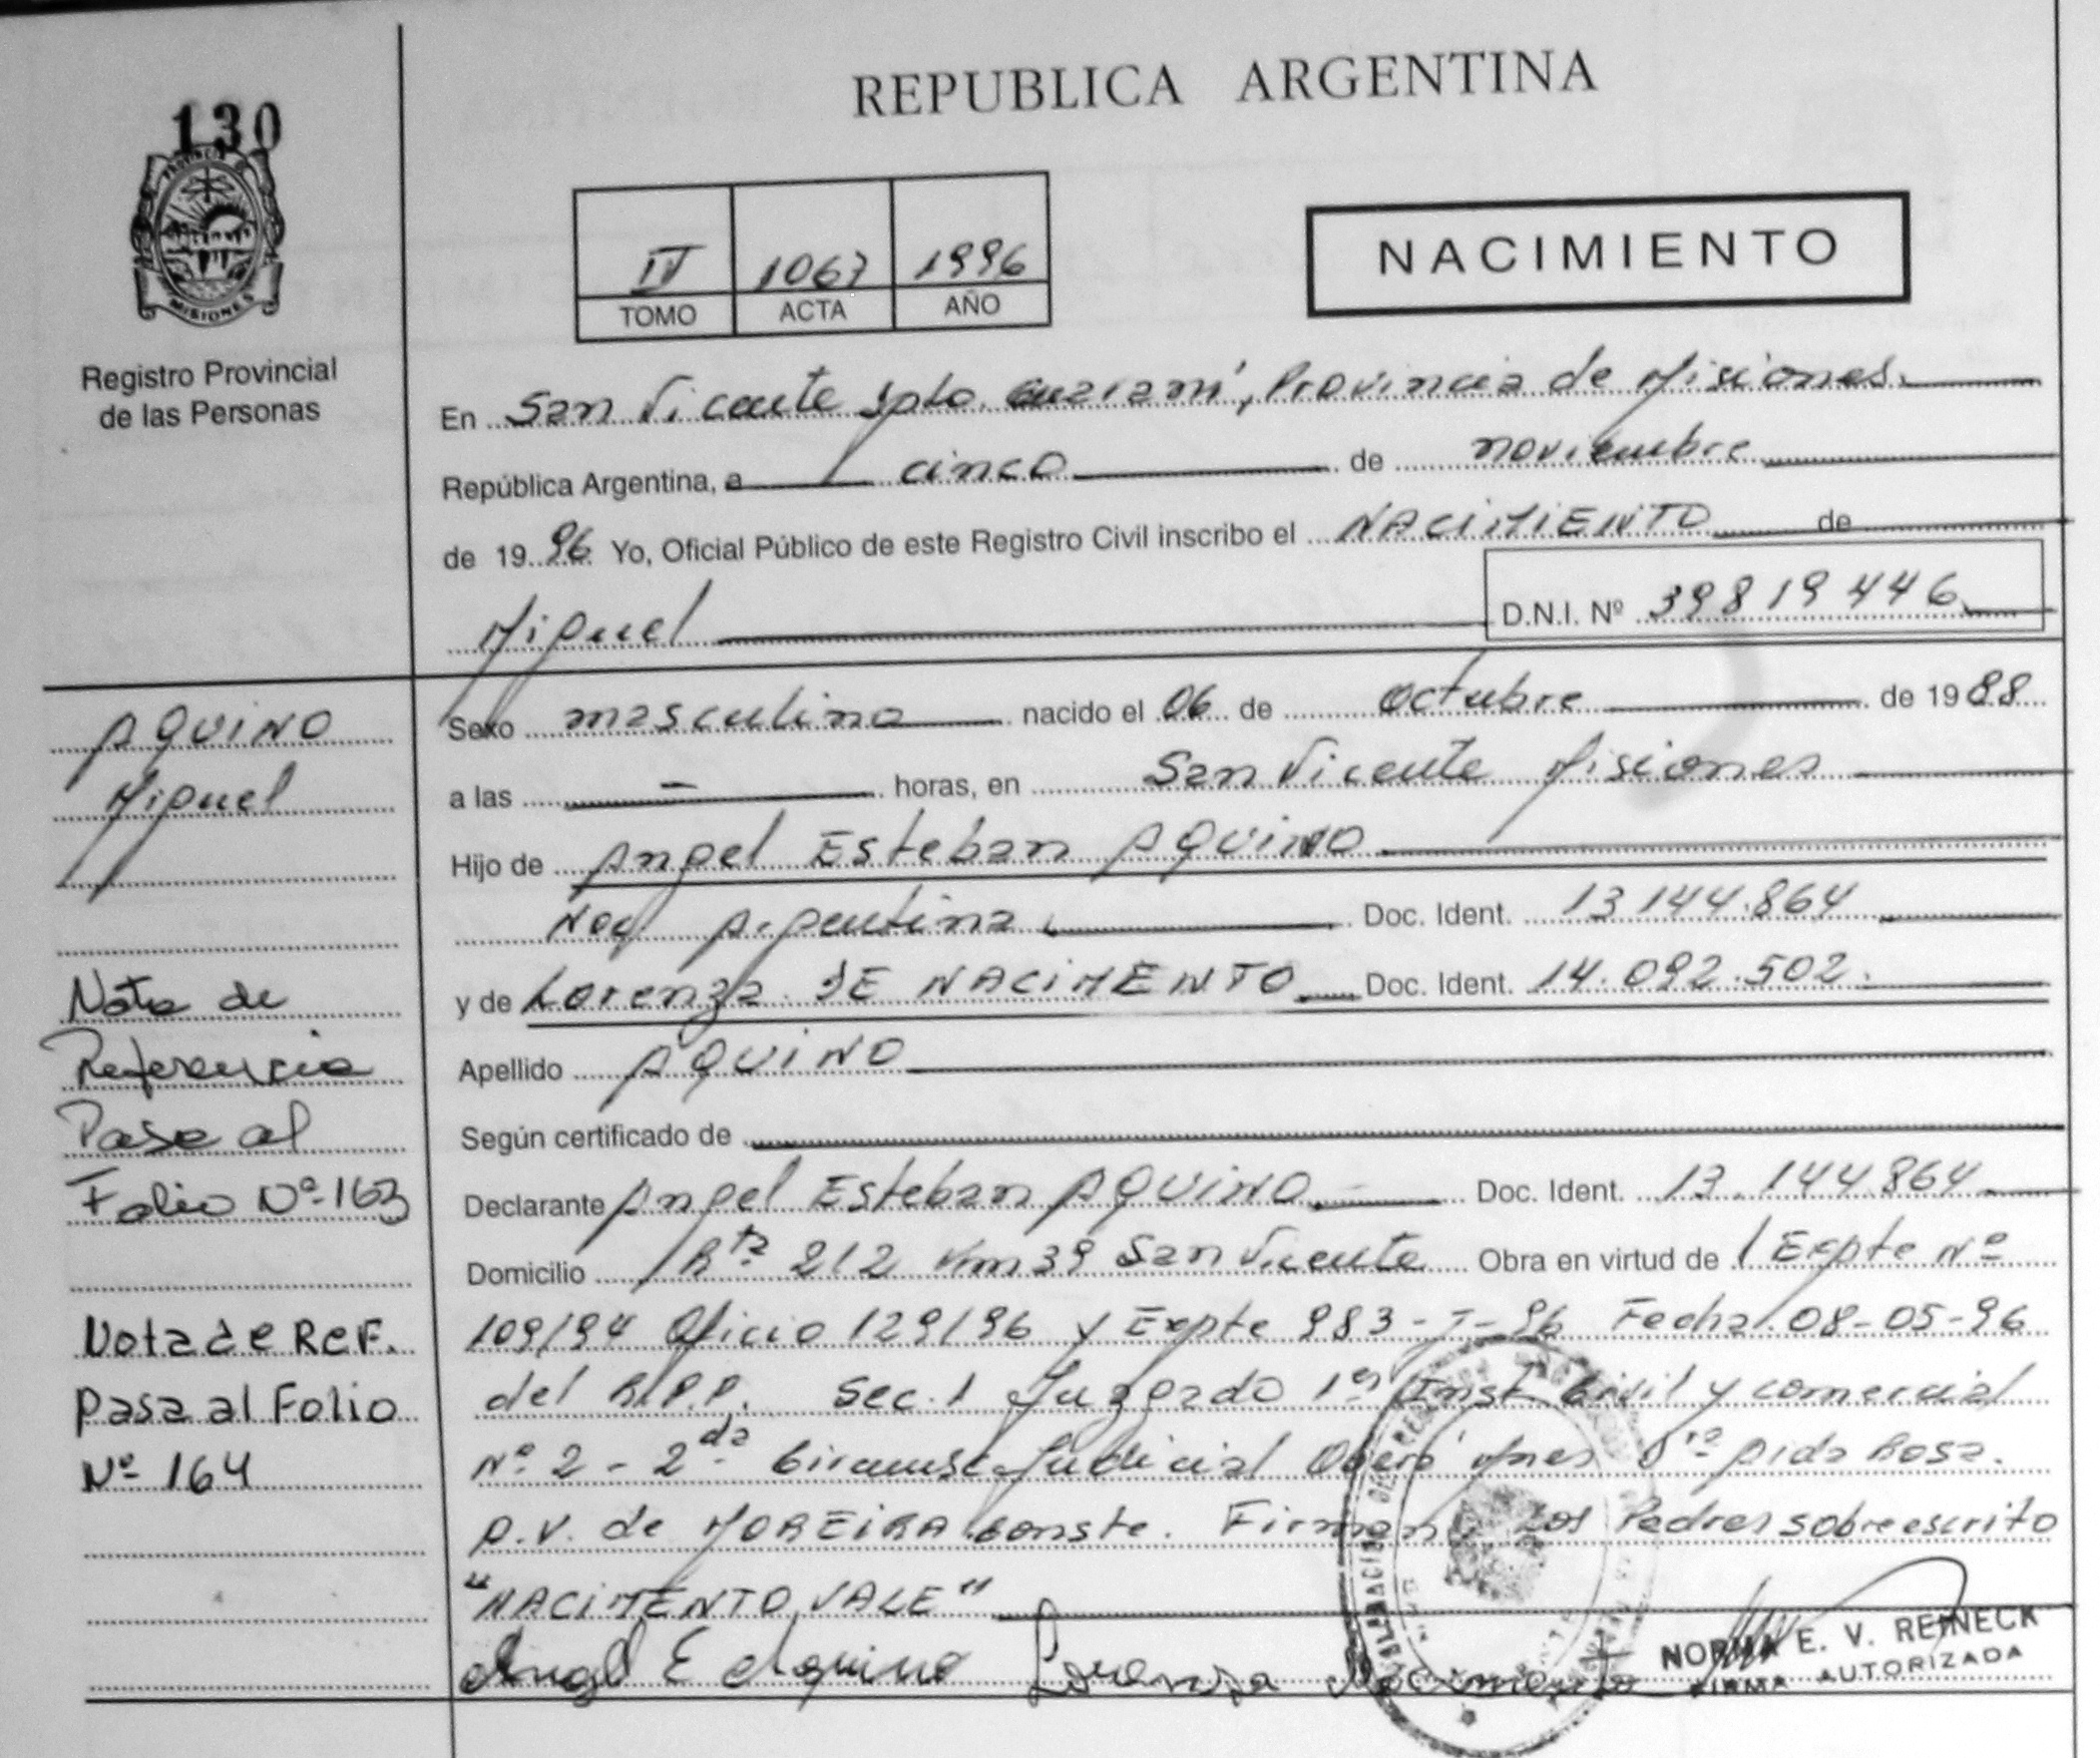 REPUBLICA ARGENTINA
130
PROVINCIA DE
MISIONES
Registro Provincial
de las Personas
IV 1067 1996
TOMO ACTA AÑO
NACIMIENTO
En San Vicente Dpto. Guaraní, Provincia de Misiones.
República Argentina, a cinco de noviembre
de 1996 Yo, Oficial Público de este Registro Civil inscribo el NACIMIENTO de
Miguel D.N.I. Nº 39819446
Sexo masculino nacido el 06 de octubre de 1988
a las — horas, en San Vicente Misiones
Hijo de Angel Esteban AQUINO
Nac Argentina Doc. Ident. 13144.864
y de Lorenza DE NACIMENTO Doc. Ident. 14.092.502.
Apellido AQUINO
Según certificado de
Declarante Angel Esteban AQUINO Doc. Ident. 13.144.864
Domicilio Rta 212 Km 39 San Vicente Obra en virtud de / Expte Nº
109/94 Oficio 129/96 y Expte 983-J-96 Fecha 08-05-96
del R.P.P. Sec. 1 Juzgado 1er Inst Civil y comercial
Nº 2 - 2da Circunsc Judicial Oberá Mnes Dra Aida Rosa.
A.V. de MOREIRA conste. Firman Los Padres sobreescrito
"NACIMENTO VALE"
Angel E Aquino Lorenza Nacimento
NORMA E. V. REINECK
FIRMA AUTORIZADA
AQUINO
Miguel
Nota de
Referencia
Pasa al
Folio Nº 163
Nota de Ref.
Pasa al Folio
Nº 164